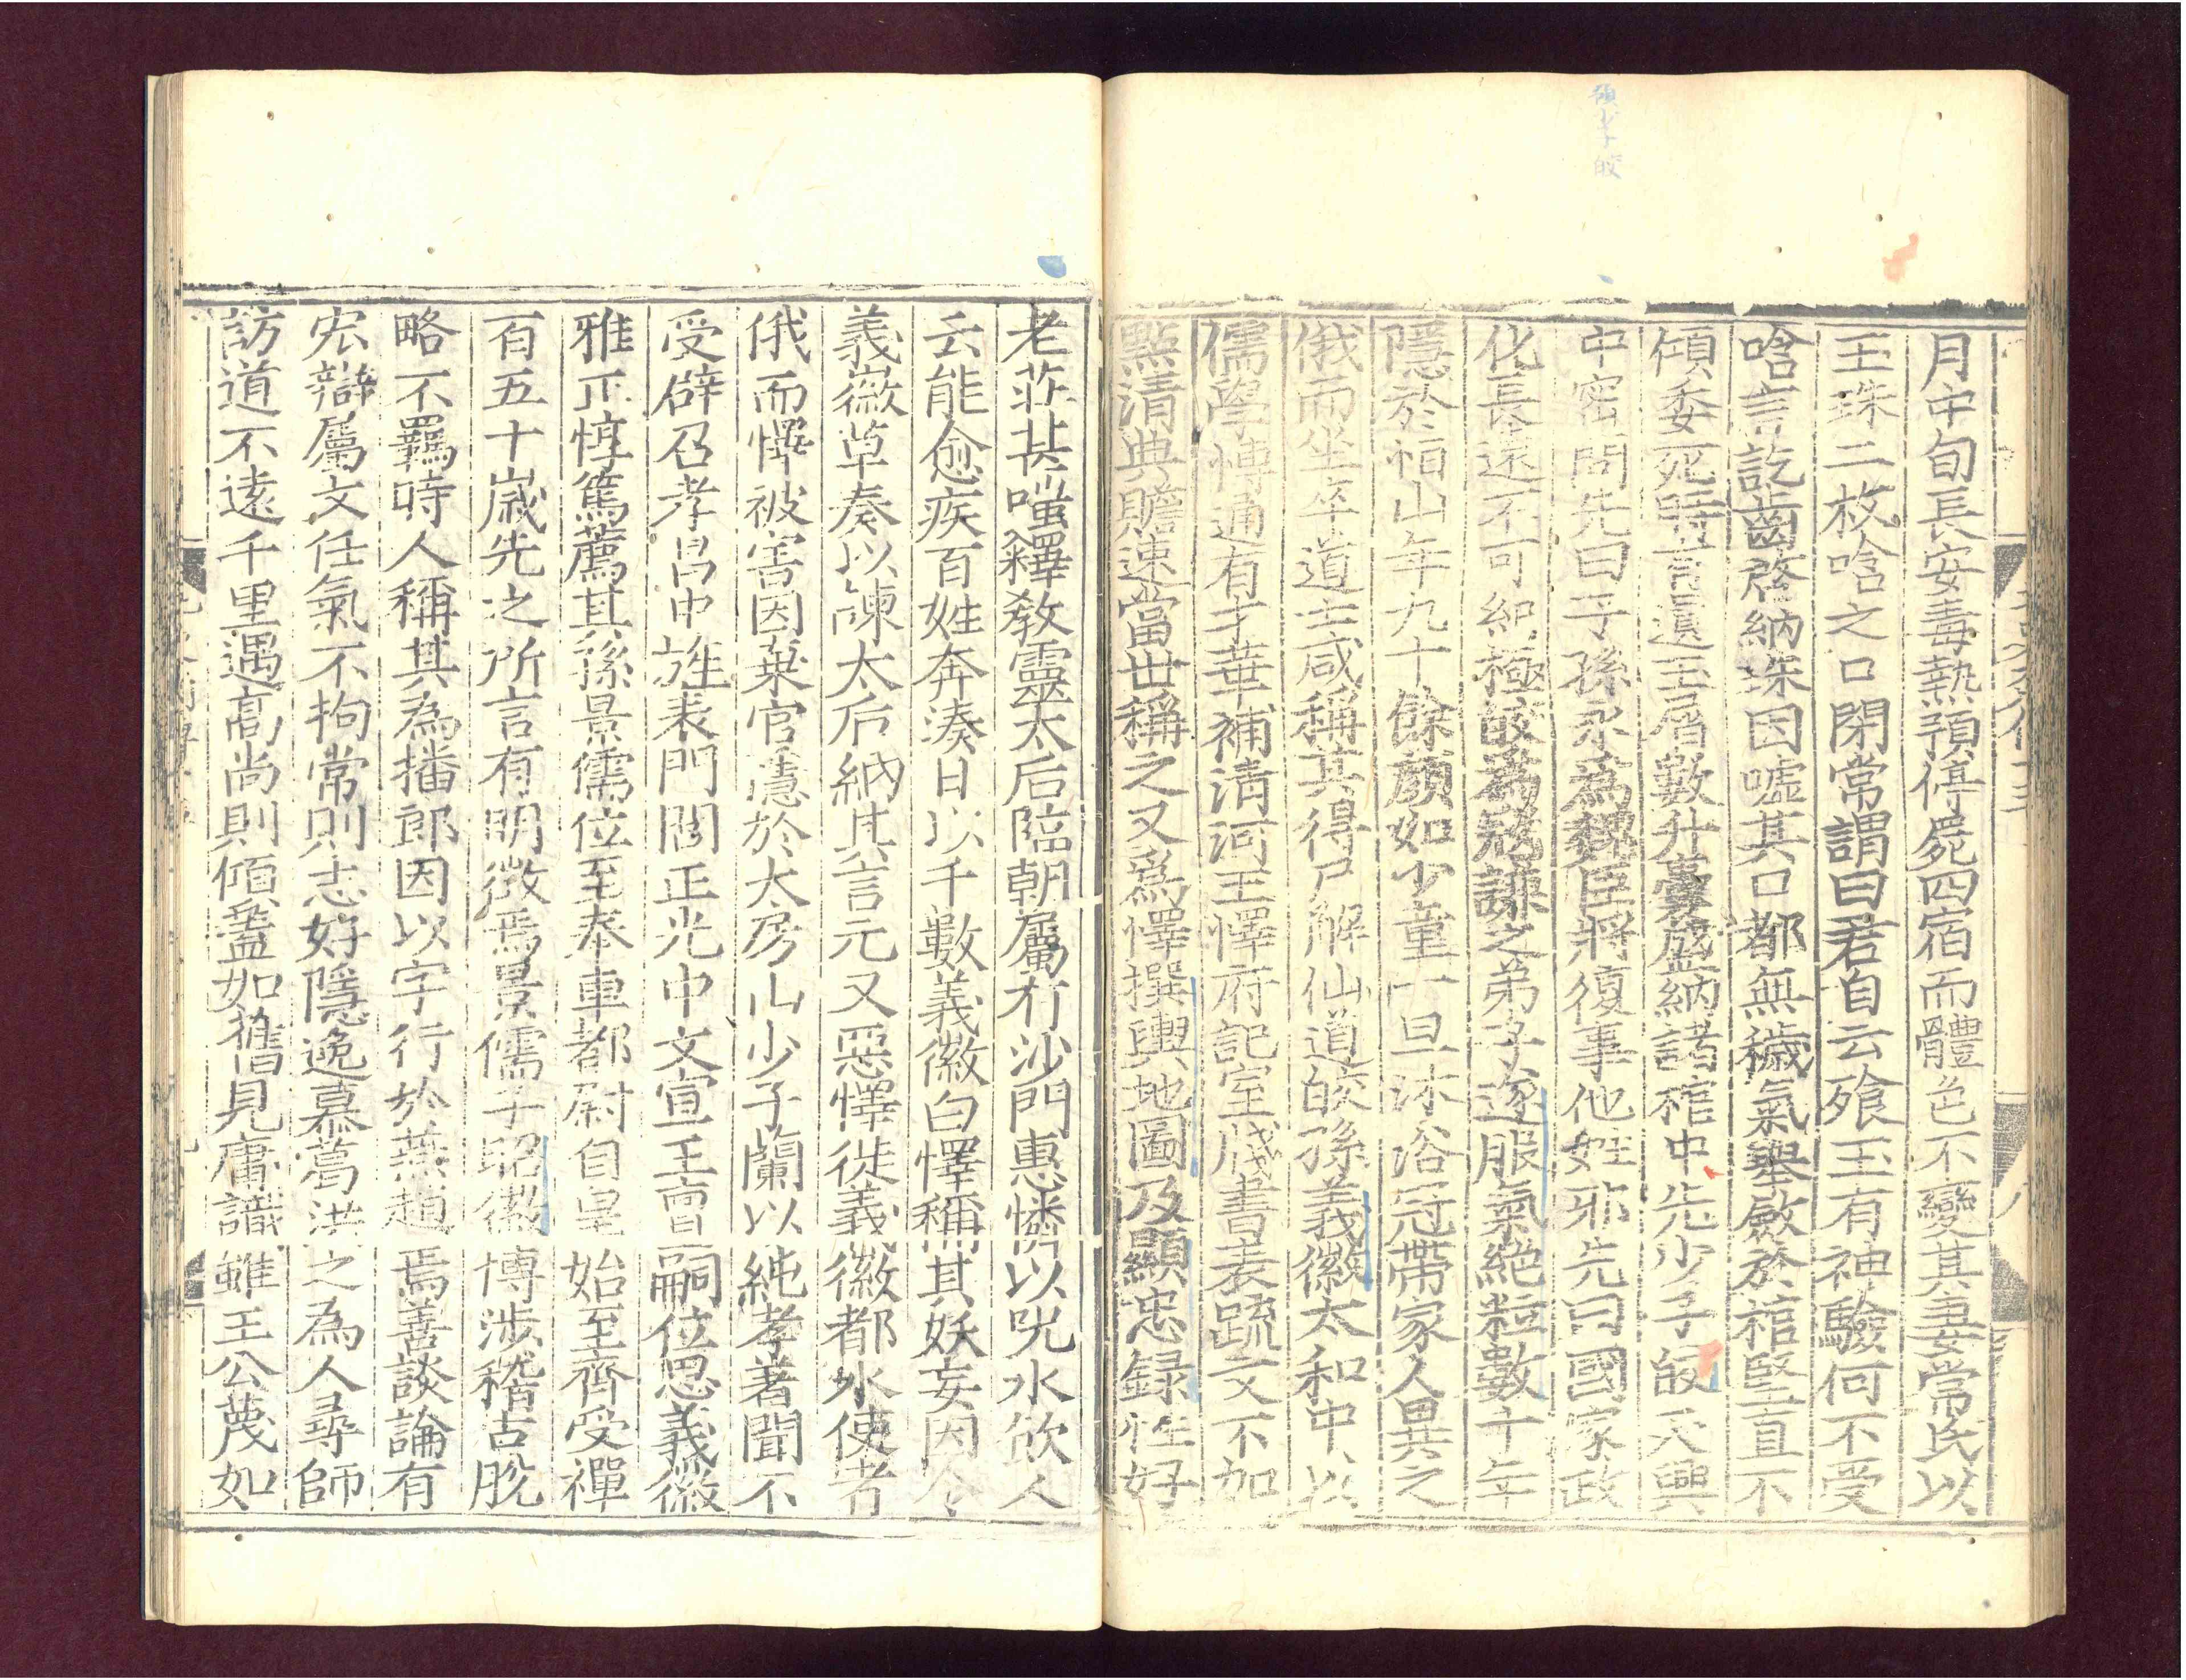 預少子皎
月中旬長安毒熱預停屍四宿而體色不變其妻常氏以
玉珠二枚唅之口閉常謂曰君自云飱玉有神驗何不受
唅言訖齒啓納珠因噓其口都無穢氣舉斂於棺堅直不
傾委死時言遺玉屑數升囊盛納諸棺中先少子皎天興
中密問先曰子孫永為魏臣將復事他姓邪先曰國家政
化長遠不可紀極皎為寇謙之弟子遂服氣絕粒數十年
隱於恒山年九十餘顏如少童一旦沐浴冠帶家人異之
俄而坐卒道士咸稱其得尸解仙道皎孫義徽太和中以
儒學博通有才華補清河王懌府記室牋書表疏文不加
點清典贍速當世稱之又為懌撰輿地圖及顯忠錄性好
老莊甚嗤釋教靈太后臨朝屬有沙門惠憐以呪水飲人
云能愈疾百姓奔湊日以千數義徽白懌稱其妖妄因令
義徽草奏以諫太后納其言元叉惡懌徙義徽都水使者
俄而懌被害因棄官隱於太房山少子蘭以純孝著聞不
受辟召孝昌中旌表門閭正光中文宣王亶嗣位思義徽
雅正惇篤薦其孫景儒位至奉車都尉自皇始至齊受禪
百五十歲先之所言有明徵焉景儒子昭徽博涉稽古脫
略不羈時人稱其為播郎因以字行於燕趙焉善談論有
宏辯屬文任氣不拘常則志好隱逸慕葛洪之為人尋師
訪道不遠千里遇高尚則傾蓋如舊見庸識雖王公蔑如